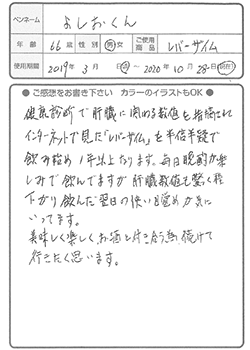 ペンネーム よしおくん
年齢 66才 性別 男・女 ご使用商品 レバーサイム
使用期間 2019年 3月 日〜 2020年 10月 28日(現在)
●ご感想をお書き下さい カラーのイラストもOK●
健康診断で肝臓に関わる数値を指摘され
インターネットで見た「レバーサイム」を半信半疑で
飲み始め1年以上たちます。毎日晩酌が楽
しみで飲んでますが肝臓数値も驚く程
下がり飲んだ翌日の使い目覚めが気に
いってます。
美味しく楽しくお酒と付き合う為、続けて
行きたく思います。